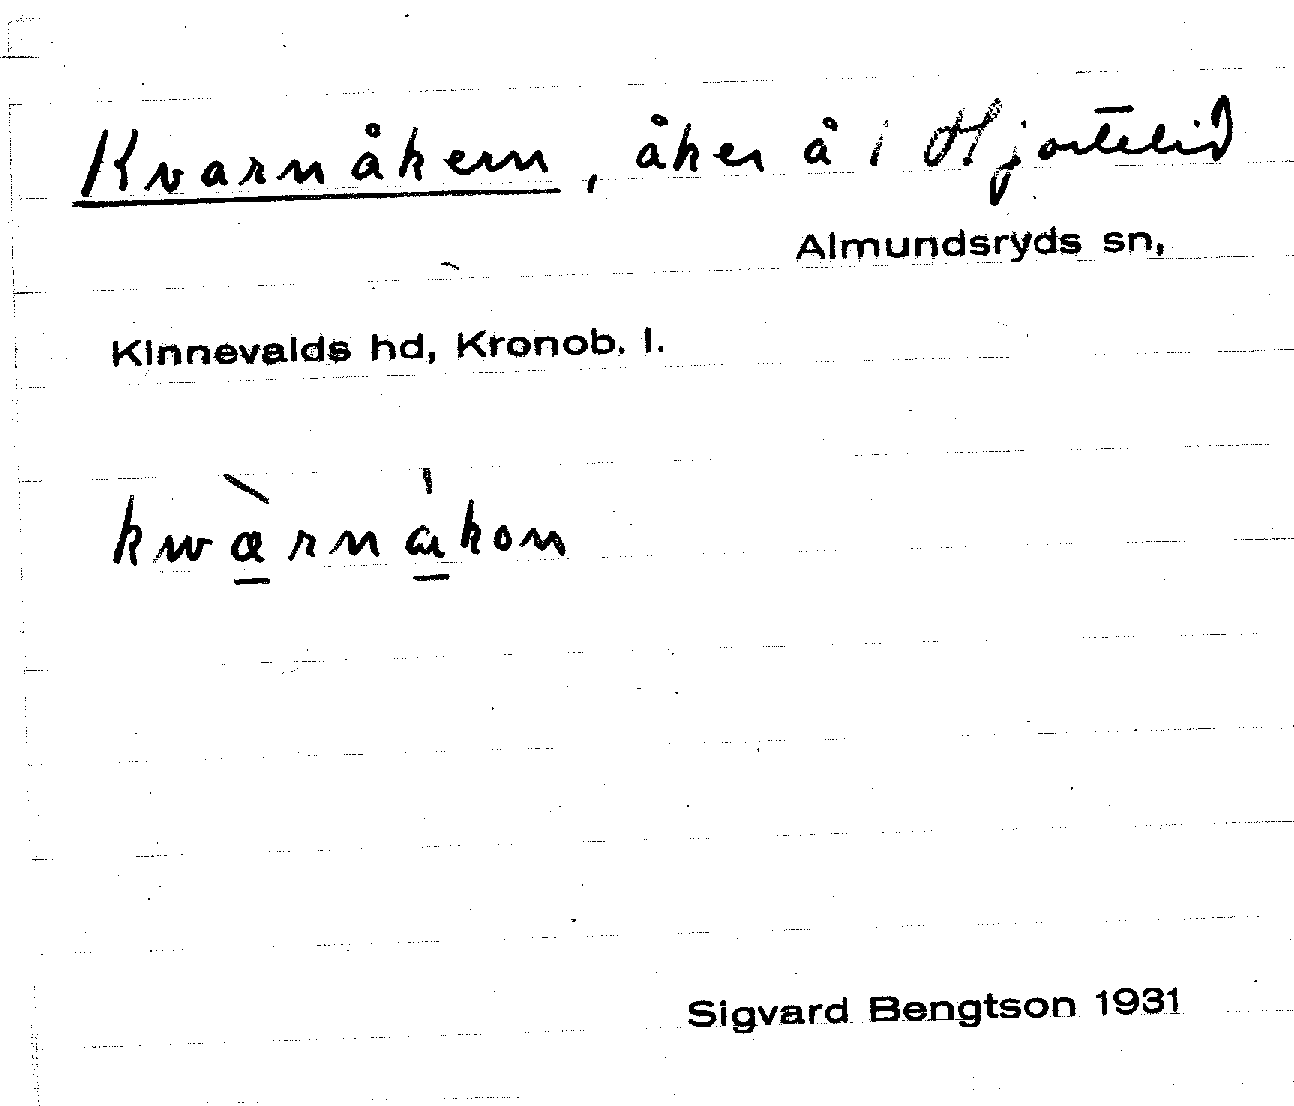 Kvarnåkern, åker å 1 Hjortelid
Almundsryds sn,
Kinnevalds hd, Kronob. l.
kwàrnåkon
Sigvard Bengtson 1931